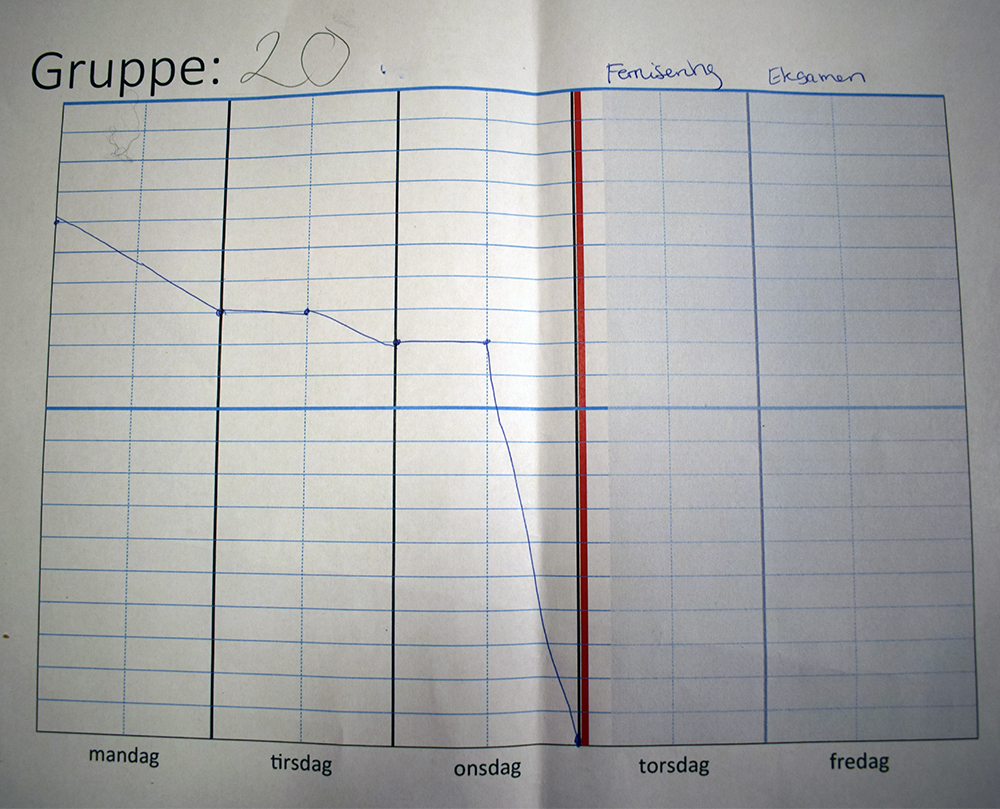 Gruppe: 20
Fernisering Eksamen
mandag tirsdag onsdag torsdag fredag